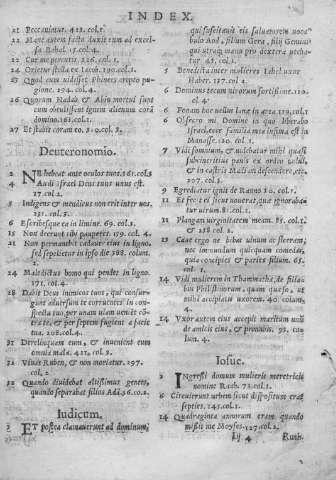 INDEX.
21 Peccauimus. 412. col.1.
22 Mane autem facto duxit eum ad excelsa Bahal. 15. col. 4.
22 Cur me percutis. 226. col. 1.
24 Orietur stella ex Iacob. 190. col. 1.
25 Quod cum vidisset Phinees arepto pugione. 294. col. 4.
26 Quorum Nadab, & Abiu mortui sunt cum obtulissent ignem alienum corã domino. 161. col. 1.
27 Et stabit coram eo. 80. col. 3.
Deuteronomio.
2 NE habeat ante oculos tuos. 161. col. 3
4 Audi israel Deus tuus unus est. 17. col. 2.
5 Indigens & mendicus non erit inter vos. 231. col. 3.
6 Scribesque ea in limine. 69. col. 3.
15 Non deerunt tibi pauperes. 179. col. 4
21 Non permanebit cadauer eius in ligno, sed sepelietur in ipso die 308. colum. 1.
24 Maledictus homo qui pendet in ligno. 171. col. 4.
28 Dabit Deus inimicos tuos, qui consurgunt aduersum te corruetes in conspectu tuo, per unam viam ueniēt cōtra te, & per septem fugient a facie tua. 208. col. 3.
31 Derelinquam eum, & inuenient eum omnia mala. 412. col. 3.
33 Viuat Ruben, & non moriatur. 297. col. 2.
32 Quando diuidebat altissimus gentes, quando separabat filios Adã. 96. co. 2.
Iudicum.
3 ET postea clamauerunt ad dominum,
qui suscitauit eis saluatorem uocabulo Aod, filium Gera, filij Gemini qui utraq; manu pro dextera utebatur. 45. col. 1.
5 Benedicta inter mulieres Iahel uxor Haber. 137. col. 2
6 Dominus tecum uirorum fortissime. 110. col. 4.
6 Ponam hoc uellus lanæ in area. 119. col. 1
6 Obsecro mi Domine in quo liberabo Israel, ecce familia mea infima est in Manasse. 120. col. 1.
7 Vidi somnium, & uidebatur mihi quasi subcinericius panis ex ordeo uolui, & in castra Madian descendere, etc. 107. col. 3.
9 Egrediatur ignis de Ramno. 80. col. 1.
11 Et fecit ei sicut nouerat, quæ ignorabatur uirum. 81. col. 1.
11 Plangam uirginitatem meam. 81. col. 1. & 218 col. 2
13 Caue ergo ne bibas uinum ac siceram, nec immundum quidquam comedas, quia concipies & paries filium. 65. col. 1.
14 Vidi mulierem in Thamnatha, de filiabus Philistinorum, quam quæso, ut mihi accipiatis uxorem. 40 colum. 4.
14 Vxor autem eius accepit maritum unū de amicis eius, & pronubis. 92. colum. 4.
Iosue.
2 INgressi domum mulieris meretricis nomine Raab. 73. col. 1.
6 Circuierunt urbem sicut dispositum erat septies. 145. col. 1.
14 Quadraginta annorum eram quando misit me Moyses. 127. col. 2.
Ttt 4 Ruth.